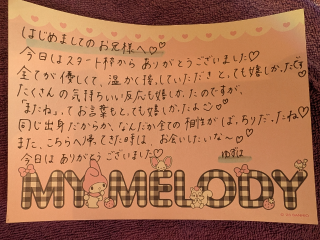 はじめましてのお兄様へ♡♡
今日はスタート枠から ありがとうございました♡
全てが優しくて、温かく接していただき とっても嬉しかったです
たくさんの気持ちいい反応も嬉しかったのですが、
「またね」ってお言葉もとっても嬉しかったよ
同じ出身だからか、なんだか全ての相性がばっちりだったね♡
また、こちらへ帰ってきた時は、お会いしたいな〜♡
今日は ありがとうございました♡
ゆずは
MY MELODY